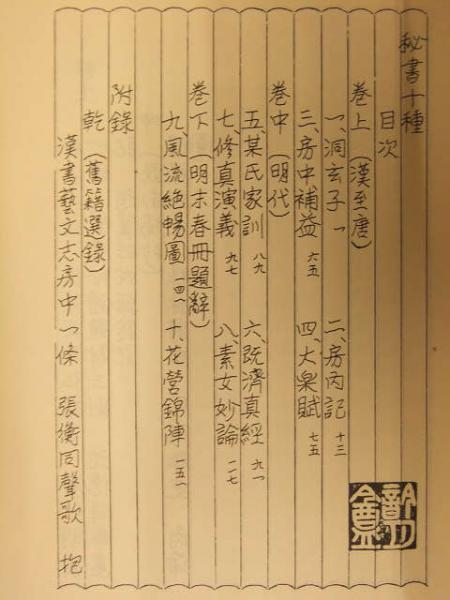 秘書十種
目次
卷上（漢至唐）
一、洞玄子 一 二、房内記 十三
三、房中補益 六五 四、大樂賦 七五
卷中（明代）
五、某氏家訓 八九 六、既濟真經 九一
七、修真演義 九七 八、素女妙論 一二七
卷下（明末春冊題辭）
九、風流絕暢圖 一四一 十、花營錦陣 一五一
附錄
乾（舊籍選錄）
漢書藝文志房中一條 張衡同聲歌 抱